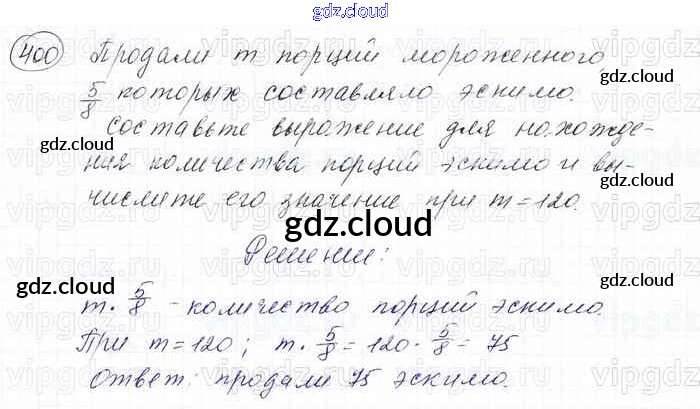 gdz.cloud
400 Продали m порций мороженного,
5/8 которых составляло эскимо.
Составьте выражение для нахожде-
ния количества порций эскимо и вы-
числите его значение при m = 120.
gdz.cloud
gdz.cloud
gdz.cloud
gdz.cloud
Решение:
gdz.cloud
gdz.cloud
m · 5/8 - количество порций эскимо.
При m = 120; m · 5/8 = 120 · 5/8 = 75
Ответ: продали 75 эскимо.
gdz.cloud